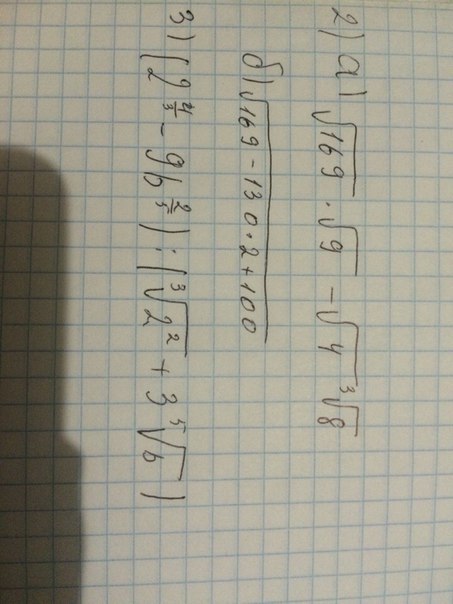 2) а) √169 · √9 - √4 ∛8
б) √169 - 130·2 + 100
3) (2^(4/3) - 9b^(2/5)) : (∛2² + 3 ⁵√b)